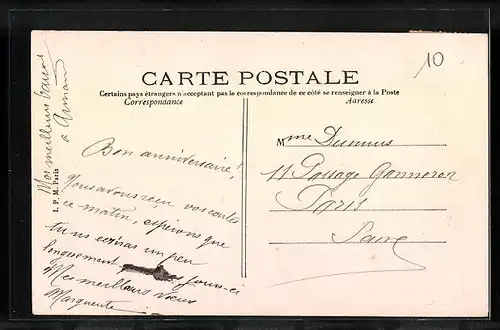 10
CARTE POSTALE
Certains pays étrangers n'acceptant pas la correspondance de ce côté se renseigner à la Poste
Correspondance
Adresse
Mes meilleurs baisers
a Armand
I. P. M. Paris
Bon anniversaire!
Nous avons reçu vos cartes
ce matin, espérons que
tu ns écriras un peu
longuement ces jours-ci
Mes meilleurs vœux
Marguerite
Mme Dumus
11 Passage Ganneron
Paris